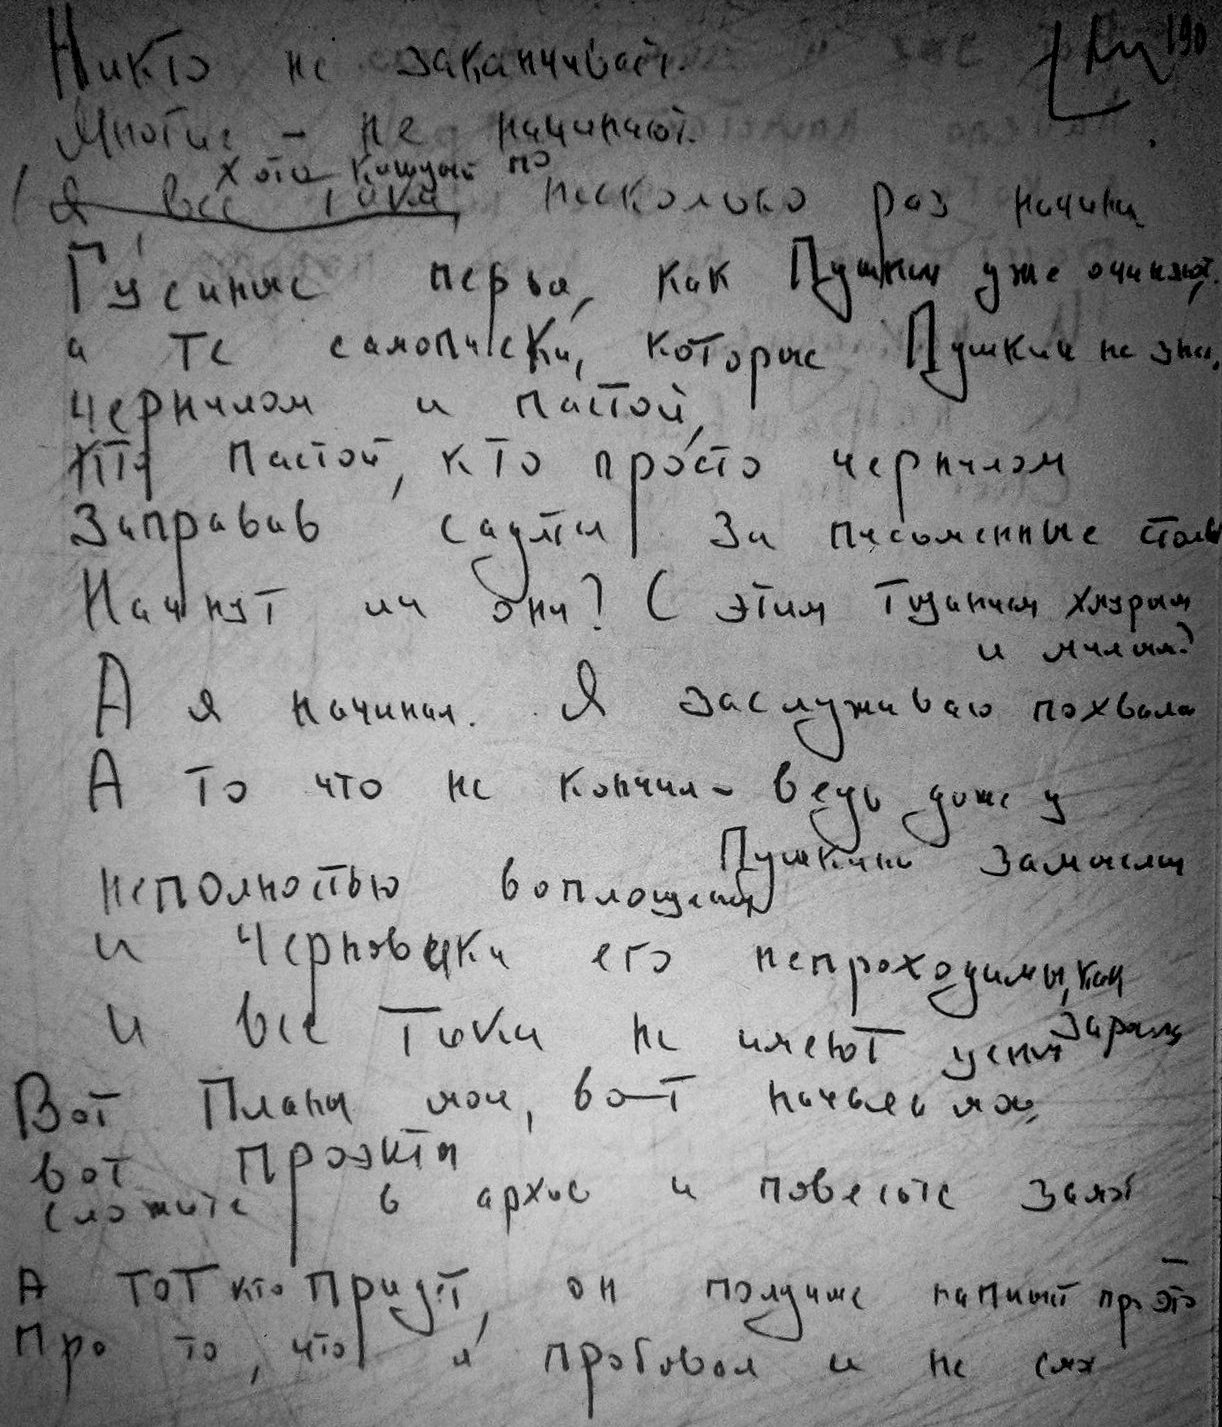 190
Никто не заканчивает.
Многие – не начинают.
Хотя каждый по
Я все таки несколько раз начина
Гусиные перья, как Пушкин уже очиняют,
а те самописки, которые Пушкин не знал,
чернилом и пастой,
кто пастой, кто просто чернилом
Заправив садятся за письменные столы
Начнут ли они? С этим тузанием хмурым
и милым?
А я начинал. Я заслуживаю похвалы
А то что не кончил – ведь даже у
Пушкина замыслы
неполностью воплощены
и Черновики его непроходимы, как
заросль
и все таки не имеют цены
Вот Планы мои, вот начала мои,
вот проэкты
сложите в архив и повесьте замок
А тот кто придёт, он получше напишет про это
Про то, что я пробовал и не смог